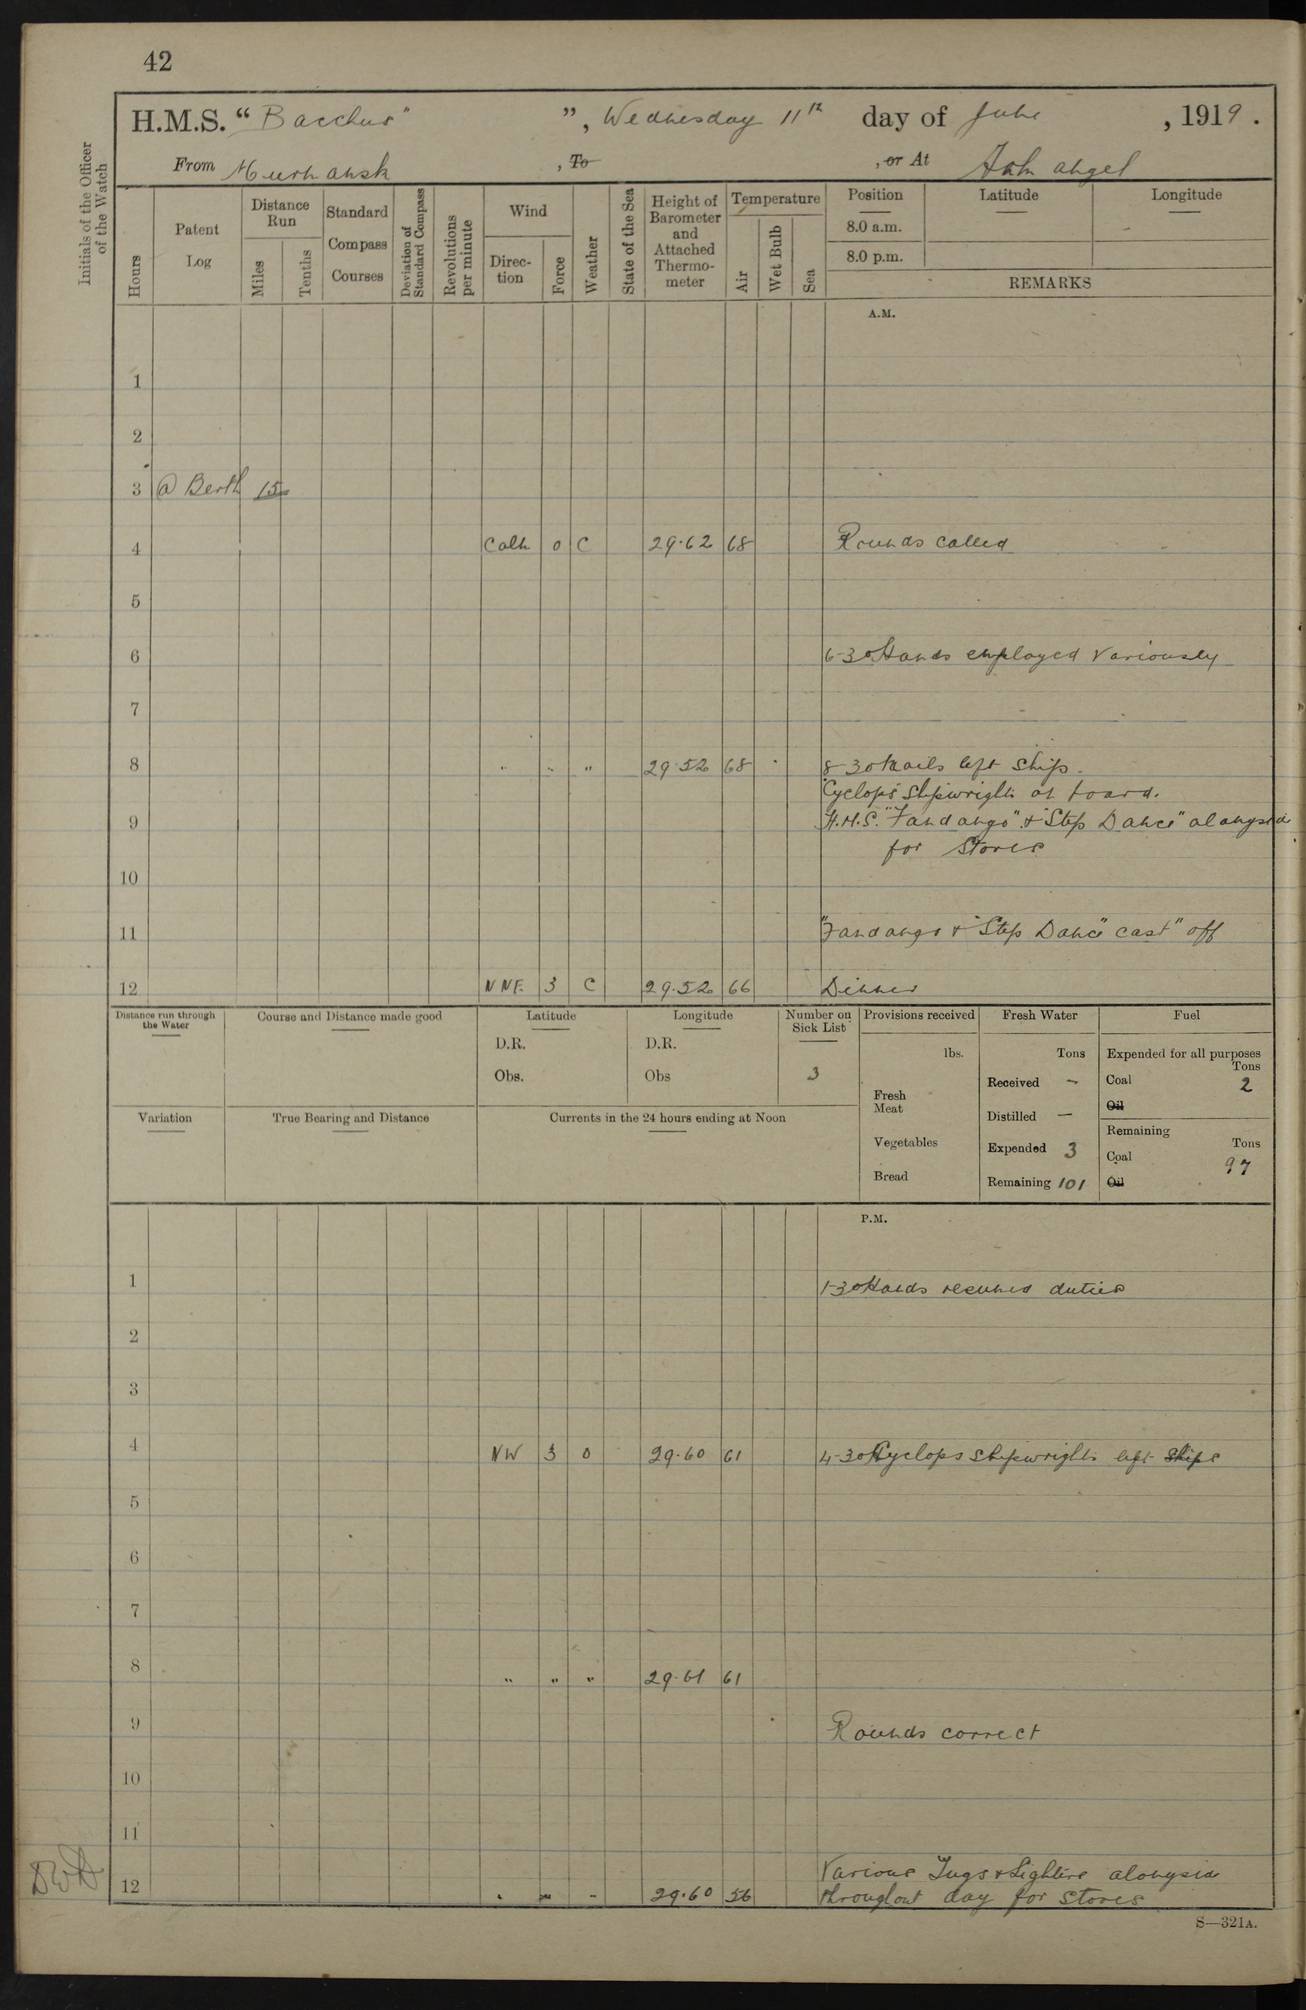 42
H.M.S. "Bacchus", Wednesday 11th day of June, 1919.
From Murmansk, To , or At Archangel
Initials of the Officer of the Watch
Hours
Patent Log
Distance Run
Miles
Tenths
Standard Compass Courses
Deviation of Standard Compass
Revolutions per minute
Wind
Direction
Force
Weather
State of the Sea
Height of Barometer and Attached Thermometer
Temperature
Air
Wet Bulb
Sea
Position
Latitude
Longitude
8.0 a.m.
8.0 p.m.
REMARKS
A.M.
1
2
3 @ Berth 15
4 Calm 0 C 29.62 68 Rounds called
5
6 6-30 Hands employed variously
7
8 " " " 29.52 68 8-30 Mails left ship.
"Cyclops" shipwrights on board.
9 H.M.S. "Fandango" & "Step Dance" alongside
for stores
10
11 "Fandango & "Step Dance" cast" off
12 NNE. 3 C 29.52 66 Dinner
Distance run through the Water
Course and Distance made good
Latitude
D.R.
Obs.
Longitude
D.R.
Obs
Number on Sick List
3
Provisions received
lbs.
Fresh Meat
Vegetables
Bread
Fresh Water
Tons
Received —
Distilled —
Expended 3
Remaining 101
Fuel
Expended for all purposes
Tons
Coal 2
Oil
Remaining
Tons
Coal 97
Oil
Variation
True Bearing and Distance
Currents in the 24 hours ending at Noon
P.M.
1 1-30 Hands resumed duties
2
3
4 NW 3 0 29.60 61 4-30 Cyclops shipwrights left ship
5
6
7
8 " " " 29.61 61
9 Rounds correct
10
11
Various Tugs & Lighters alongside
12 " " " 29.60 56 throughout day for stores
S—321A.